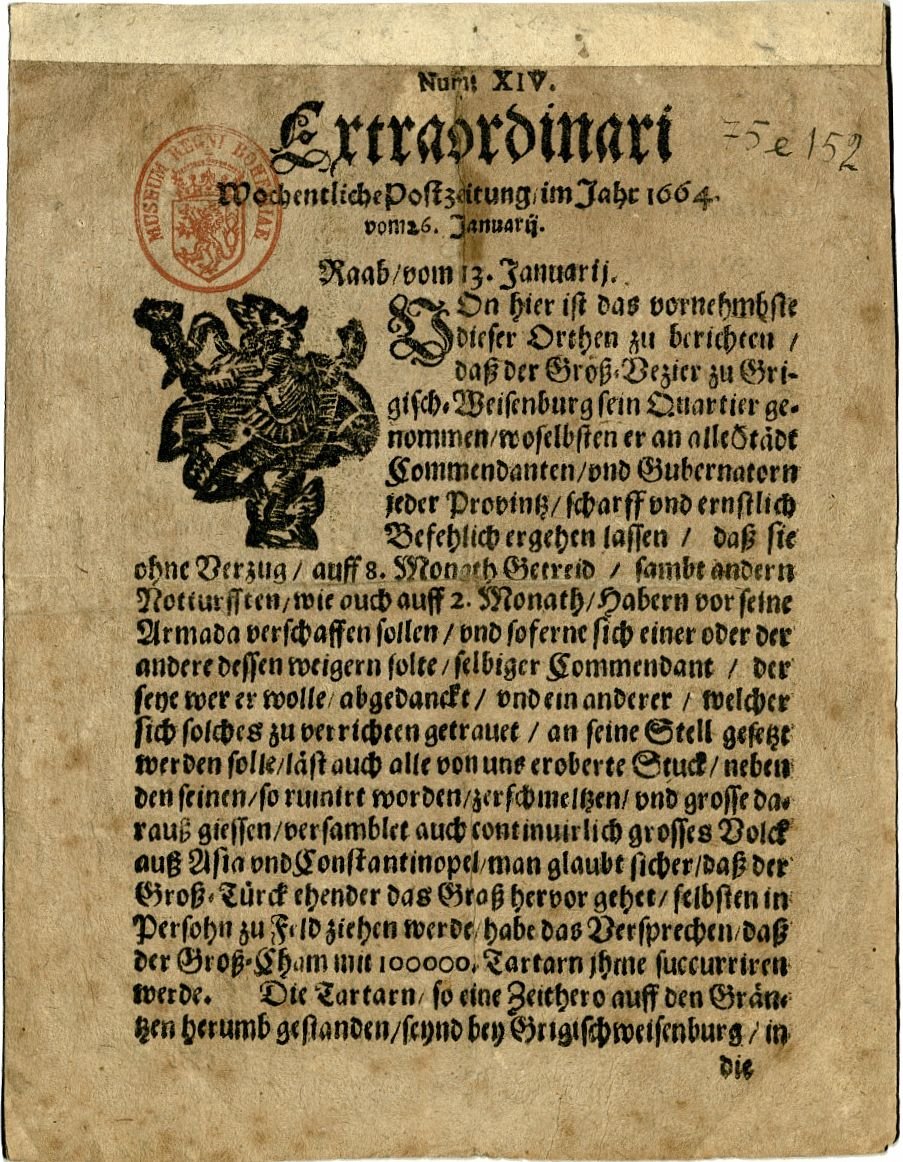 Num: XIV.
Extraordinari
75 e 152
Wochentliche Postzeitung/im Jahr 1664.
vom 26. Januarij.
MUSEUM REGNI BOHEMIAE
Raab/vom 13. Januarij.
VOn hier ist das vornehmbste
dieser Orthen zu berichten /
daß der Groß-Vezier zu Gri-
gisch-Weisenburg sein Quartier ge-
nommen/woselbsten er an alle Städt
Commendanten/vnd Gubernatorn
jeder Provintz/scharff vnd ernstlich
Befehlich ergehen lassen / daß sie
ohne Verzug/ auff 8. Monath Getreid / sambt andern
Notturfften/wie auch auff 2. Monath/Habern vor seine
Armada verschaffen sollen/vnd soferne sich einer oder der
andere dessen weigern solte/selbiger Commendant / der
seye wer er wolle/abgedanckt/ vnd ein anderer / welcher
sich solches zu verrichten getrauet / an seine Stell gesetzt
werden solle/läst auch alle von uns eroberte Stuck/neben
den seinen/so ruinirt worden/zerschmeltzen/ vnd grosse da-
rauß giessen/versamblet auch continuirlich grosses Volck
auß Asia vnd Constantinopel/man glaubt sicher/daß der
Groß-Türck ehender das Graß hervor gehet/selbsten in
Persohn zu Feld ziehen werde/habe das Versprechen/daß
der Groß-Cham mit 100000. Tartarn jhme succurriren
werde. Die Tartarn/ so eine Zeithero auff den Grän-
tzen herumb gestanden/seynd bey Grigischweisenburg/in
die